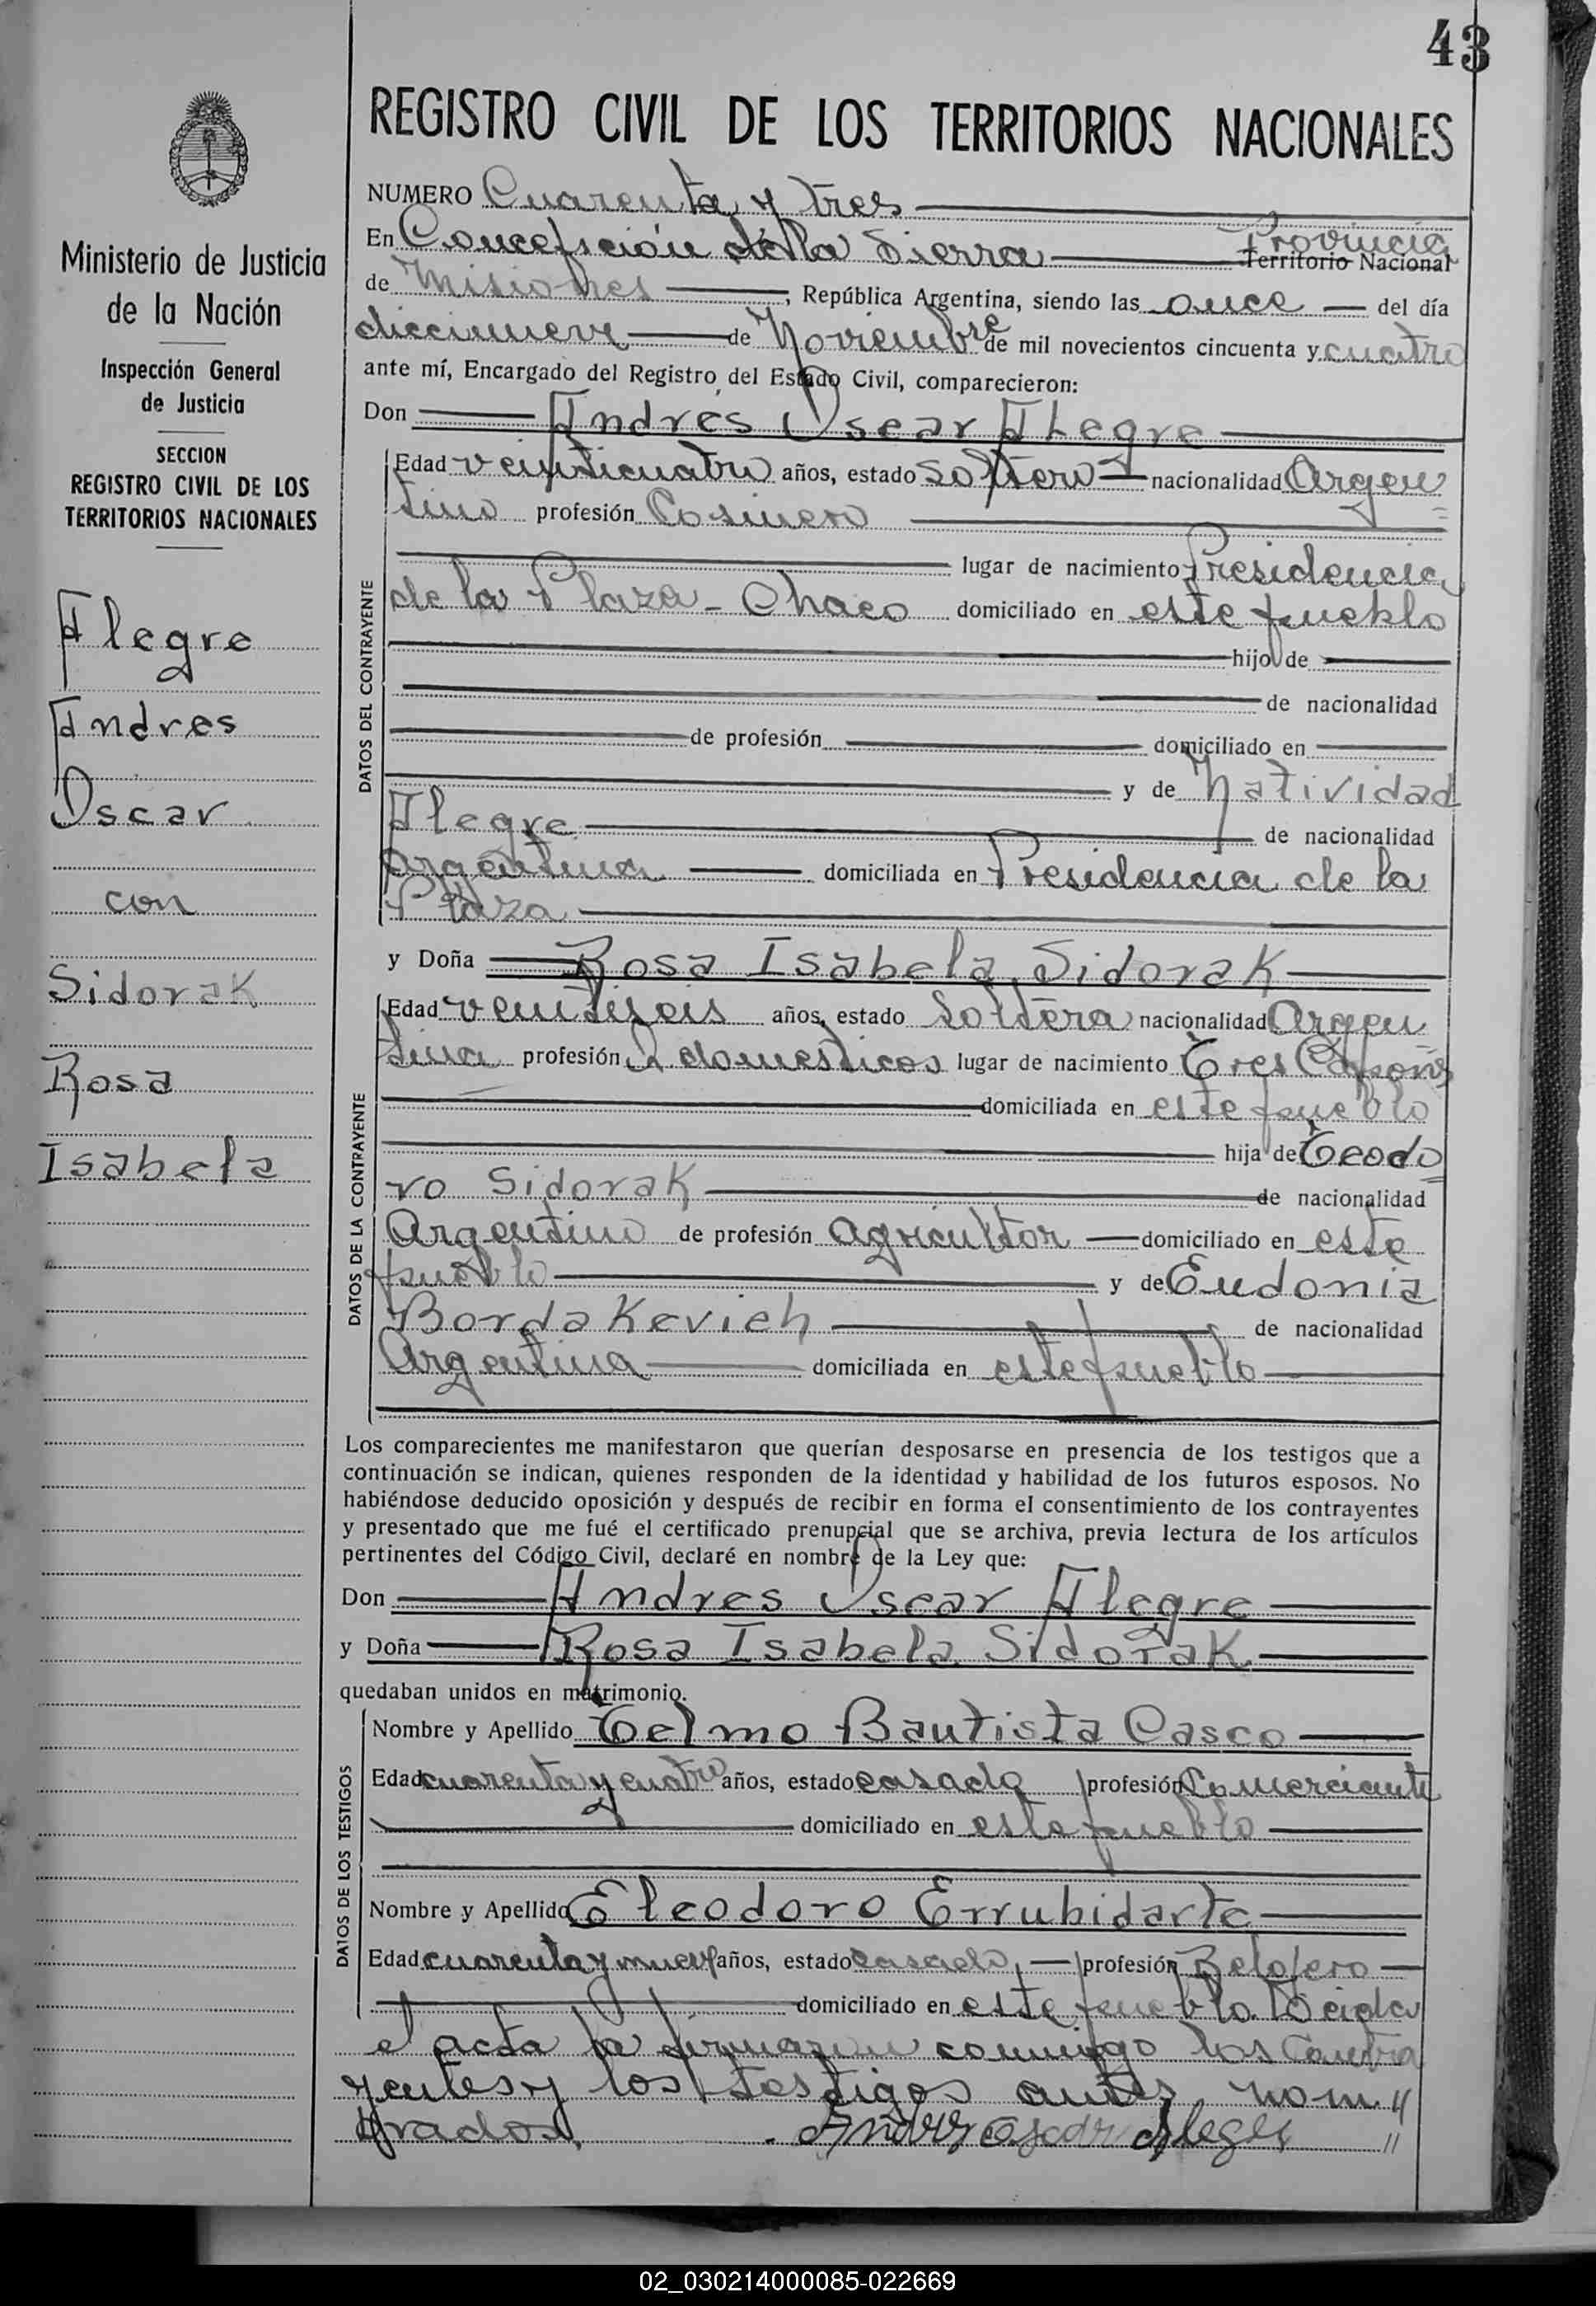 43
REGISTRO CIVIL DE LOS TERRITORIOS NACIONALES
Ministerio de Justicia
de la Nación
Inspección General
de Justicia
SECCION
REGISTRO CIVIL DE LOS
TERRITORIOS NACIONALES
Alegre
Andres
Oscar
con
Sidorak
Rosa
Isabela
NUMERO Cuarenta y tres
En Concepción de la Sierra Provincia Territorio Nacional
de Misiones, República Argentina, siendo las once del día
diecinueve de Noviembre de mil novecientos cincuenta y cuatro
ante mí, Encargado del Registro del Estado Civil, comparecieron:
Don Andrés Oscar Alegre
DATOS DEL CONTRAYENTE
Edad veinticuatro años, estado soltero nacionalidad Argen
tino profesión Cosinero
lugar de nacimiento Presidencia
de la Plaza - Chaco domiciliado en este pueblo
hijo de
de nacionalidad
de profesión domiciliado en
y de Natividad
Alegre de nacionalidad
argentina domiciliada en Presidencia de la
Plaza
y Doña Rosa Isabela Sidorak
DATOS DE LA CONTRAYENTE
Edad años, estado Soltera nacionalidad Argen
tina profesión Q domesticos lugar de nacimiento Tres Capones
domiciliada en este pueblo
hija de Teodo
ro Sidorak de nacionalidad
Argentino de profesión agricultor domiciliado en este
pueblo y de Eudonia
Bordakevich de nacionalidad
Argentina domiciliada en este pueblo
Los comparecientes me manifestaron que querían desposarse en presencia de los testigos que a
continuación se indican, quienes responden de la identidad y habilidad de los futuros esposos. No
habiéndose deducido oposición y después de recibir en forma el consentimiento de los contrayentes
y presentado que me fué el certificado prenupcial que se archiva, previa lectura de los artículos
pertinentes del Código Civil, declaré en nombre de la Ley que:
Don Andres Oscar Alegre
y Doña Rosa Isabela Sidorak
quedaban unidos en matrimonio.
DATOS DE LOS TESTIGOS
Nombre y Apellido Telmo Bautista Casco
Edad cuarenta y cuatro años, estado casado profesión Comerciante
domiciliado en este pueblo
Nombre y Apellido Eleodoro Errubidarte
Edad cuarenta y nueve años, estado casado profesión Relojero
domiciliado en este pueblo. Leida
el acta la firmaron conmigo los Contra
yentes y los testigos antes nom"
brados. Andres Oscar Alegre "
02_030214000085-022669